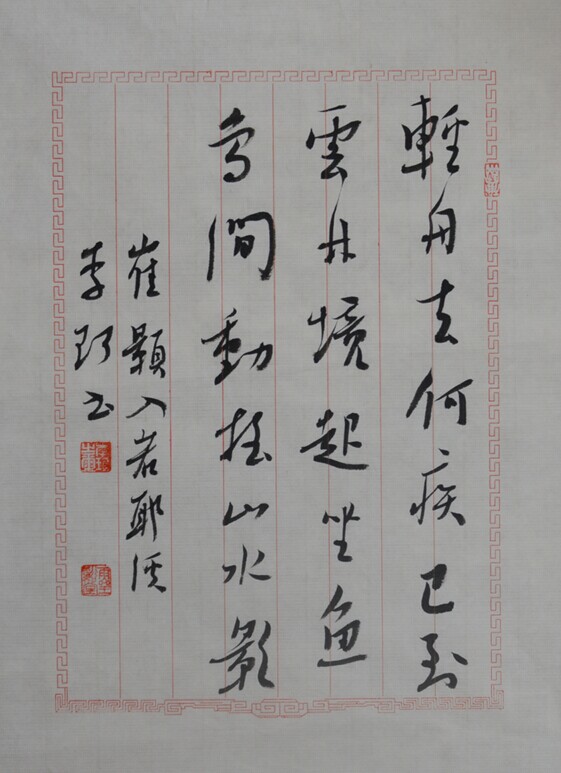 輕舟去何疾已到
雲林境起坐魚
鳥間動搖山水影
崔顥入若耶溪
李書